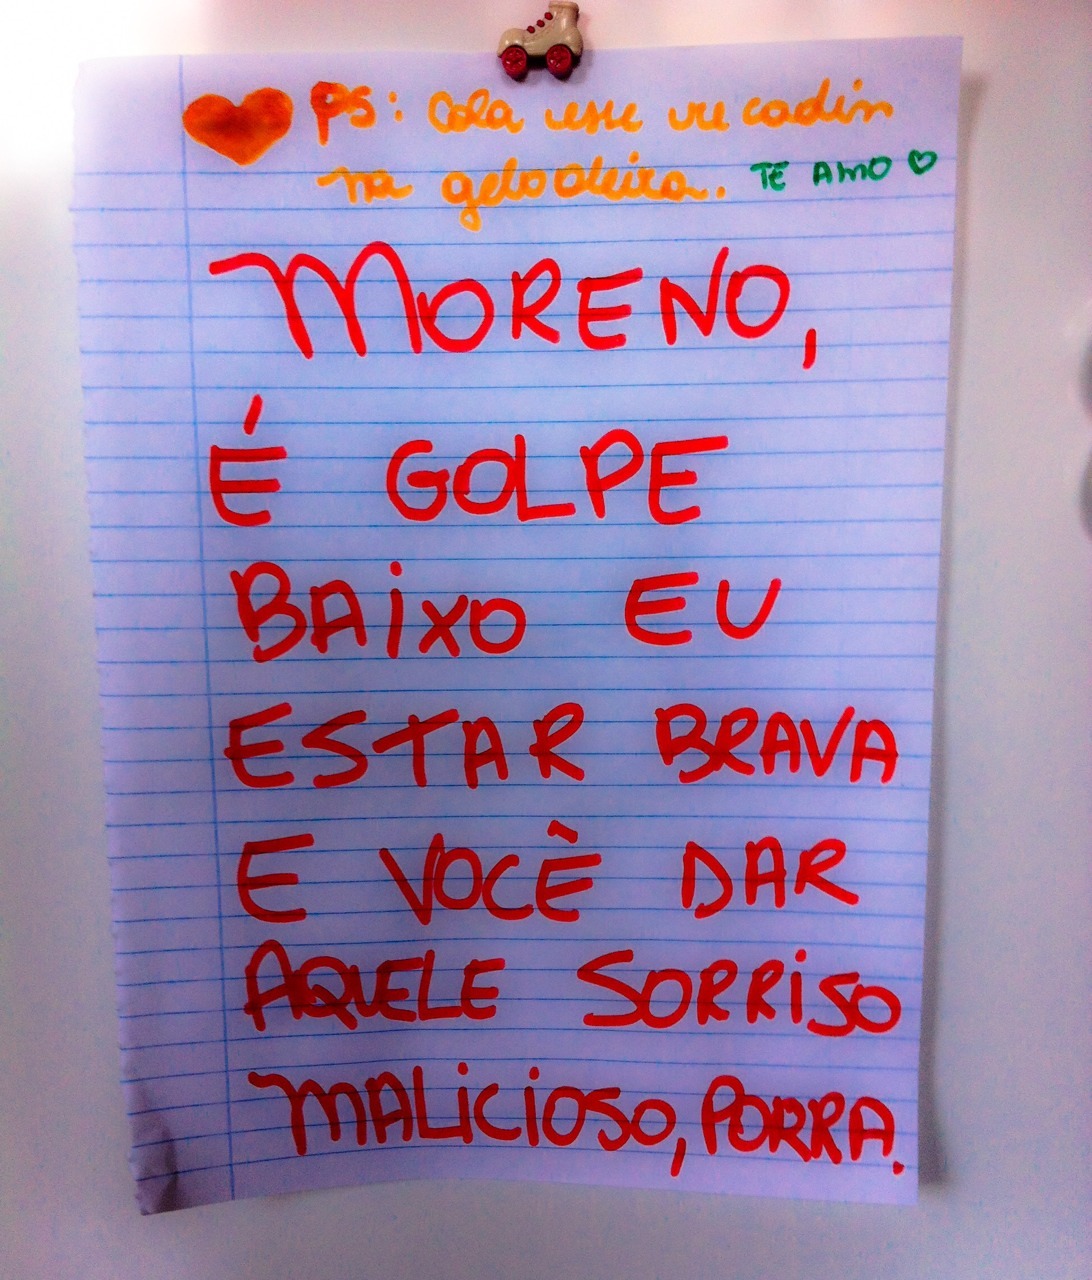 PS: Cola esse recadin
na geladeira. TE AMO
MORENO,
É GOLPE
BAIXO EU
ESTAR BRAVA
E VOCÈ DAR
AQUELE SORRISO
MALICIOSO, PORRA.